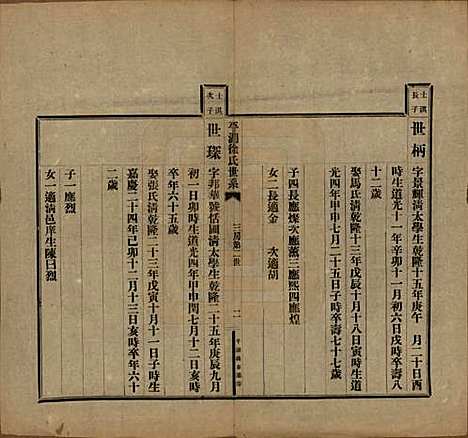 士淇
長子
世柄
字景輝清太學生乾隆十五年庚午 月二十日酉
時生道光十一年辛卯十一月初六日戌時卒壽八
十二歲
娶馬氏清乾隆十三年戊辰十月十八日寅時生道
光四年甲申七月二十五日子時卒壽七十七歲
子四長應燦次應薰三應熙四應煌
女二長適金 次適胡
平湖徐氏世系
三房第 世
士淇
次子
世琛
字邦華號恬園清太學生乾隆二十五年庚辰九月
初一日卯時生道光四年甲申閏七月十二日亥時
卒年六十五歲
娶張氏清乾隆二十三年戊寅十一月十一日子時生
嘉慶二十四年己卯十二月十三日亥時卒年六十
二歲
子一應烈
女一適 邑庠生陳曰烈